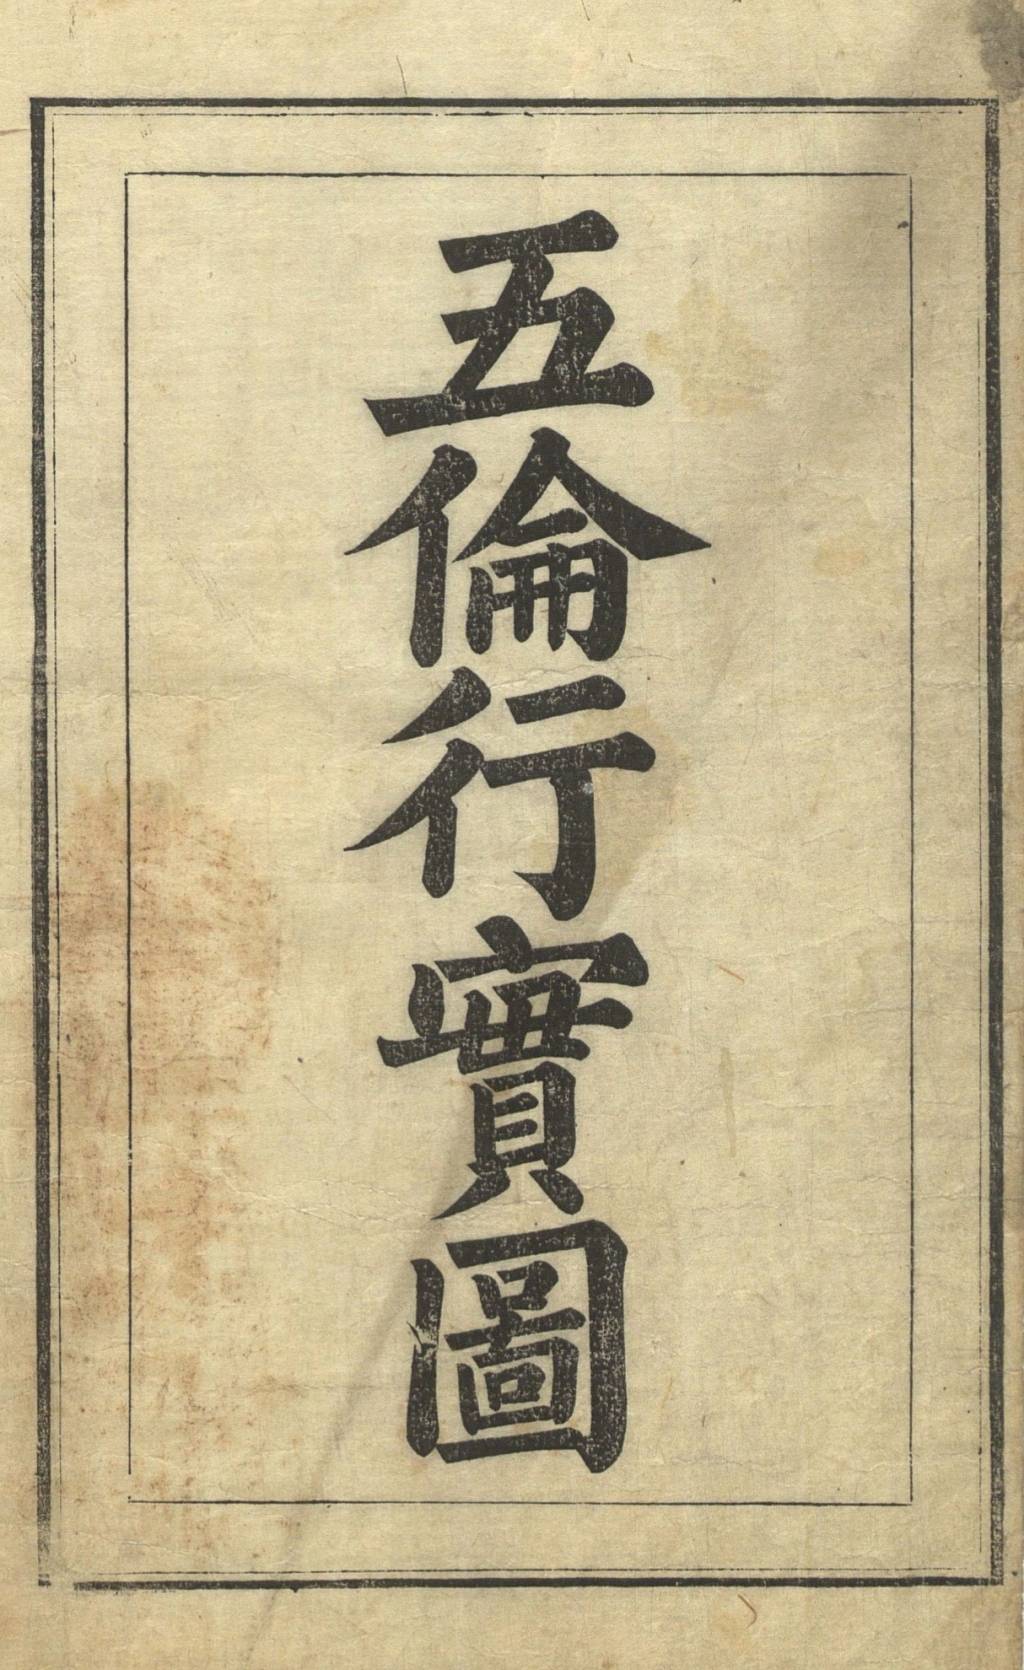 五倫行實圖